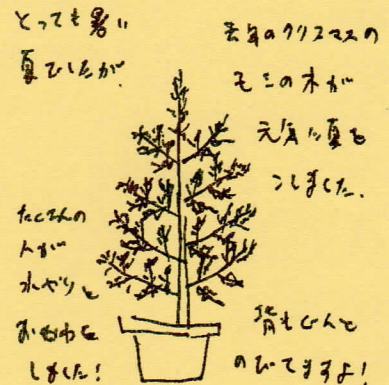 とっても暑い
夏でしたが
去年のクリスマスの
モミの木が
元気に夏を
こしました。
たくさんの
人が
水やりと
おせわを
しました!
背もぐんと
のびてますよ!